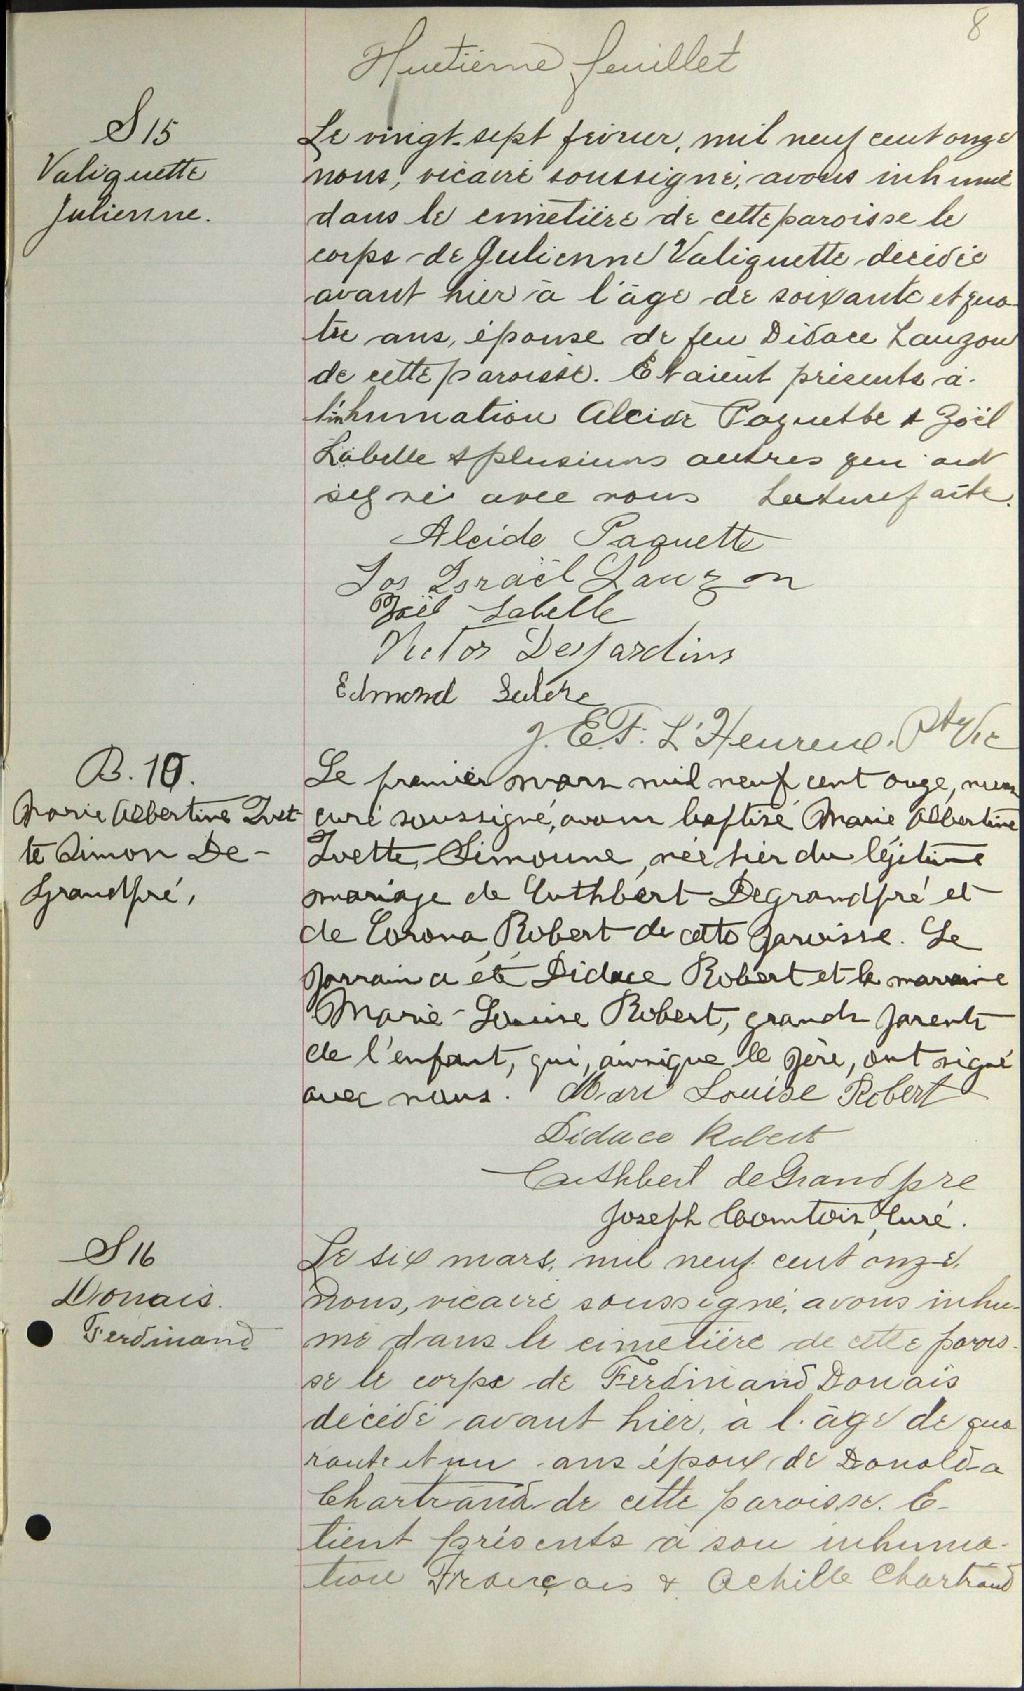 8
Huitième feuillet
S 15
Valiquette
Julienne.
Le vingt-sept février, mil neuf cent onze
nous, vicaire soussigné, avons inhumé
dans le cimetière de cette paroisse le
corps de Julienne Valiquette décédée
avant hier à l'âge de soixante et qua-
tre ans, épouse de feu Didace Lauzon
de cette paroisse. Etaient présents à
l'inhumation Alcide Paquette & Zoël
Labelle & plusieurs autres qui ont
signé avec nous Lecture faite.
Alcide Paquette
Jos Israël Lauzon
Zoël Labelle
Victor Desjardins
Edmond
J. E. F. L'Heureux. Ptre Vic
B. 10.
Marie Albertine Ivet-
te Simon De-
Grandpré,
Le premier mars mil neuf cent onze, nous
curé soussigné, avons baptisé Marie Albertine
Ivette, Simoune, née hier du légitime
mariage de Cuthbert Degrandpré et
de Corona Robert de cette paroisse. Le
parrain a été Didace Robert et la marraine
Marie-Louise Robert, grands parents
de l'enfant, qui, ainsi que le père, ont signé
avec nous. Marie Louise Robert
Didace Robert
Cuthbert deGrandpre
Joseph Comtois, Curé.
S 16
Donais.
Ferdinand
Le six mars, mil neuf cent onze.
Nous, vicaire soussigné, avons inhu-
mé dans le cimetière de cette parois-
se le corps de Ferdinand Donais
décédé avant hier, à l'âge de qua
rante et un ans époux de Donalda
Chartrand de cette paroisse. E-
tient présents à son inhuma-
tion François & Achille Chartrand